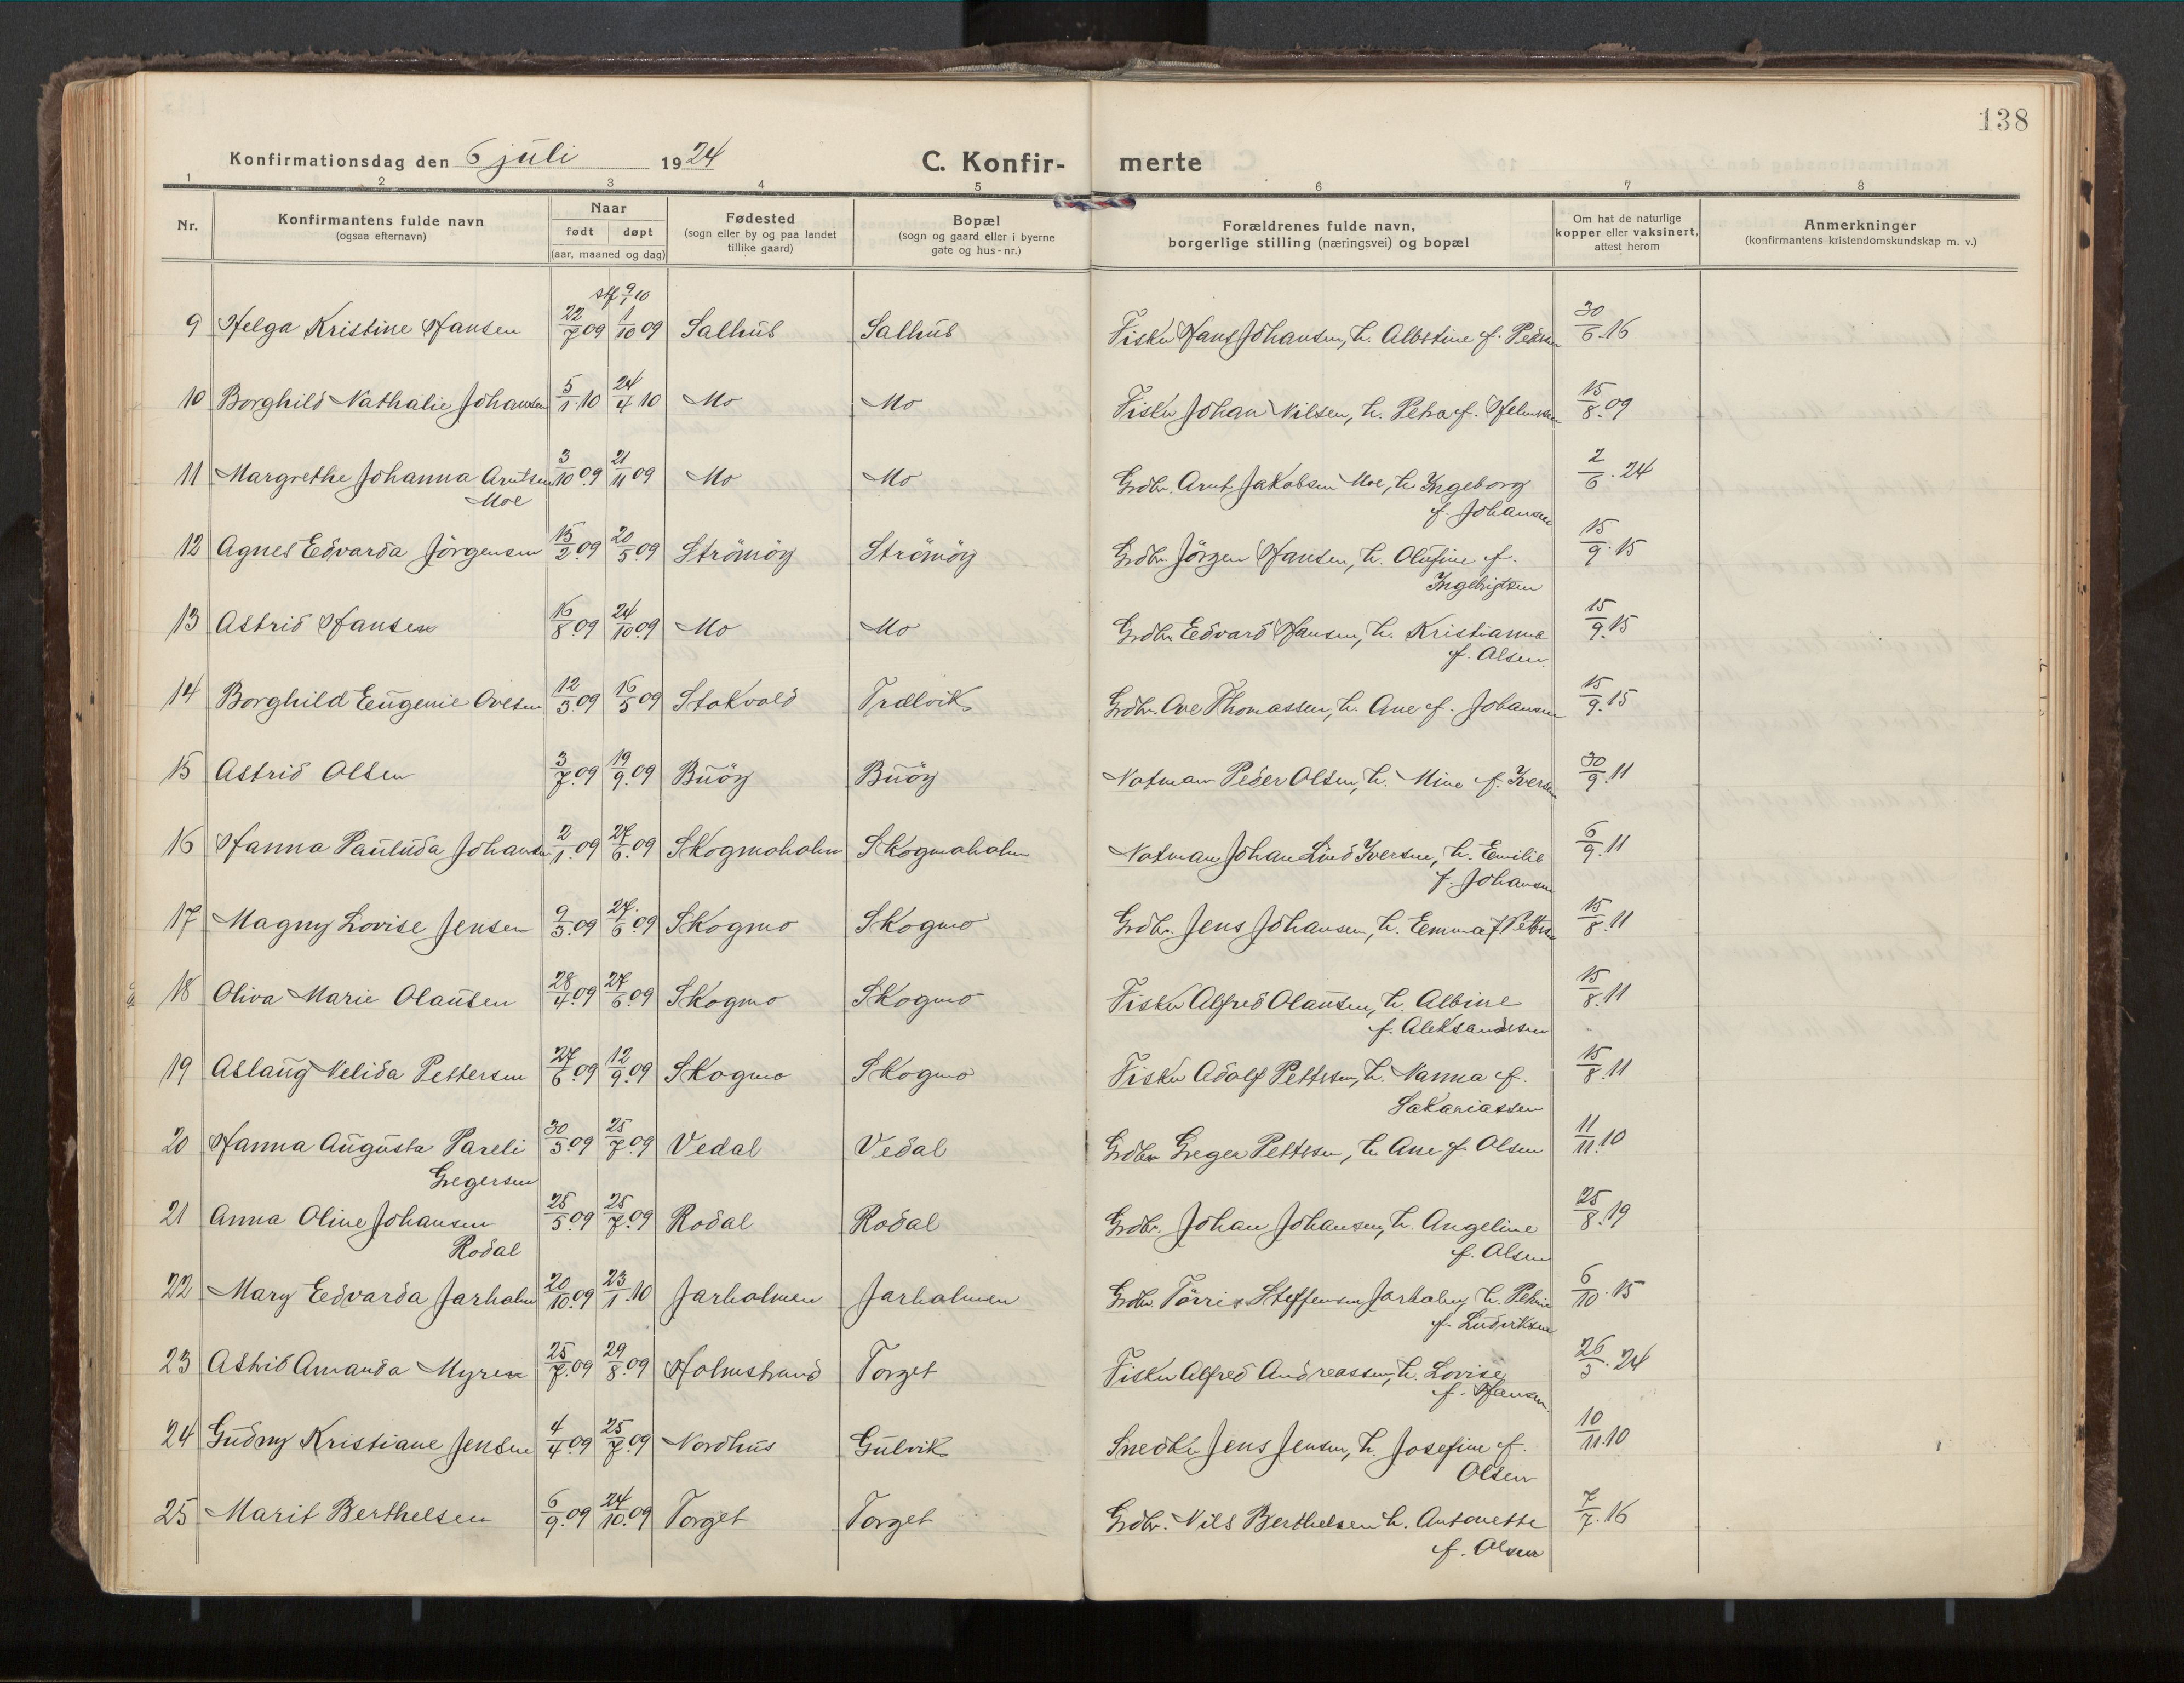 138
Konfirmationsdag den 6 juli 1924 C. Konfir- merte
1 2 3 4 5 6 7 8
Nr. Konfirmantens fulde navn (ogsaa efternavn) Naar født døpt (aar, maaned og dag) Fødested (sogn eller by og paa landet tillike gaard) Bopæl (sogn og gaard eller i byerne gate og hus-nr.) Forældrenes fulde navn, borgerlige stilling (næringsvei) og bopæl Om hat de naturlige kopper eller vaksinert, attest herom Anmerkninger (konfirmantens kristendomskundskap m. v.)
stf 9/1 10
9 Helga Kristine Hansen 22/7 09 1/10 09 Salhus Salhus Fisker Hans Johansen, h. Albertine f. Peders 30/6.16
10 Borghild Nathalie Johansen 5/1.10 24/4 10 Mo Mo Fisker Johan Nilsen, h. Petra f. 15/8.09
11 Margrethe Johanna Arntsen 3/10 09 21/11 09 Mo Mo Grdbr. Arnt Jakobsen Moe, h. Ingeborg 2/6.24
Moe f. Johansen
12 Agnes Edvarda Jörgensen 15/2 09 20/5 09 Strömöy Strömöy Grdbr. Jörgen Hansen, h. Olufine f. 15/9.15
Ingebrigtsen
13 Astrid Hansen 16/8 09 24/10 09 Mo Mo Grdbr. Edvard Hansen, h. Kristianna 15/9.15
f. Olsen
14 Borghild Eugenie Ovesen 12/3 09 16/5 09 Stokvold Trælvik Grdbr. Ove Thomassen, h. Ane f. Johansen 15/9.15
15 Astrid Olsen 3/7.09 19/9.09 Buöy Buöy Notman Peder Olsen, h. Mine f. Iversen 30/9.11
16 Hanna Pauluda Johansen 2/1.09 27/6.09 Skogmoholm Skogmoholm Notman Johan Lind Iversen, h. Emilie 6/9.11
f. Johansen
17 Magny Lovise Jensen 9/3.09 27/6.09 Skogmo Skogmo Grdbr. Jens Johansen, h. Emma f. Petters 15/8.11
18 Oliva Marie Olausen 28/4.09 27/6.09 Skogmo Skogmo Fisker Alfred Olausen, h. Albine 15/8.11
f. Aleksandersen
19 Aslaug Velida Pettersen 27/6.09 12/9.09 Skogmo Skogmo Fisker Adolf Pettersen, h. Nanna f. 15/8.11
Sakariassen
20 Hanna Augusta Pareli 30/5.09 25/7.09 Vedal Vedal Grdbr. Greger Pettersen, h. Ane f. Olsen 11/11.10
Gregersen
21 Anna Oline Johansen 25/5.09 25/7.09 Rodal Rodal Grdbr. Johan Johansen, h. Angeline 25/8.19
Rodal f. Olsen
22 Mary Edvarda Jarholm 20/10.09 23/1.10 Jarholmen Jarholmen Grdbr. Törris Steffensen Jarholm, h. Petrine 6/10.15
f. Ludviksen
23 Astrid Amanda Myren 25/7.09 29/8.09 Holmstrand Torget Fisker Alfred Andreassen, h. Lovise 26/3.24
f. Hansen
24 Gudny Kristiane Jensen 4/4.09 25/7.09 Nordhus Gulvik Snedker Jens Jensen, h. Josefine f. 10/11.10
Olsen
25 Marit Berthelsen 6/9.09 24/10.09 Torget Torget Grdbr. Nils Berthelsen h. Antonette 7/7.16
f. Olsen